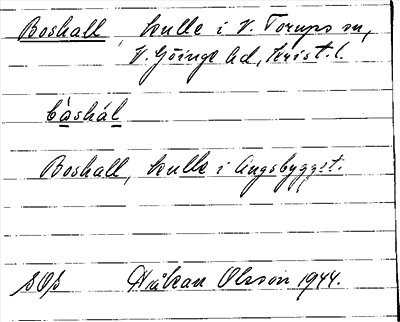 Boshall, kulle i V. Torups sn,
V. Göinge hd, Krist. l.
båshál
Boshall, kulle i Ängsbygget.
SOÅ Håkan Olsson 1944.